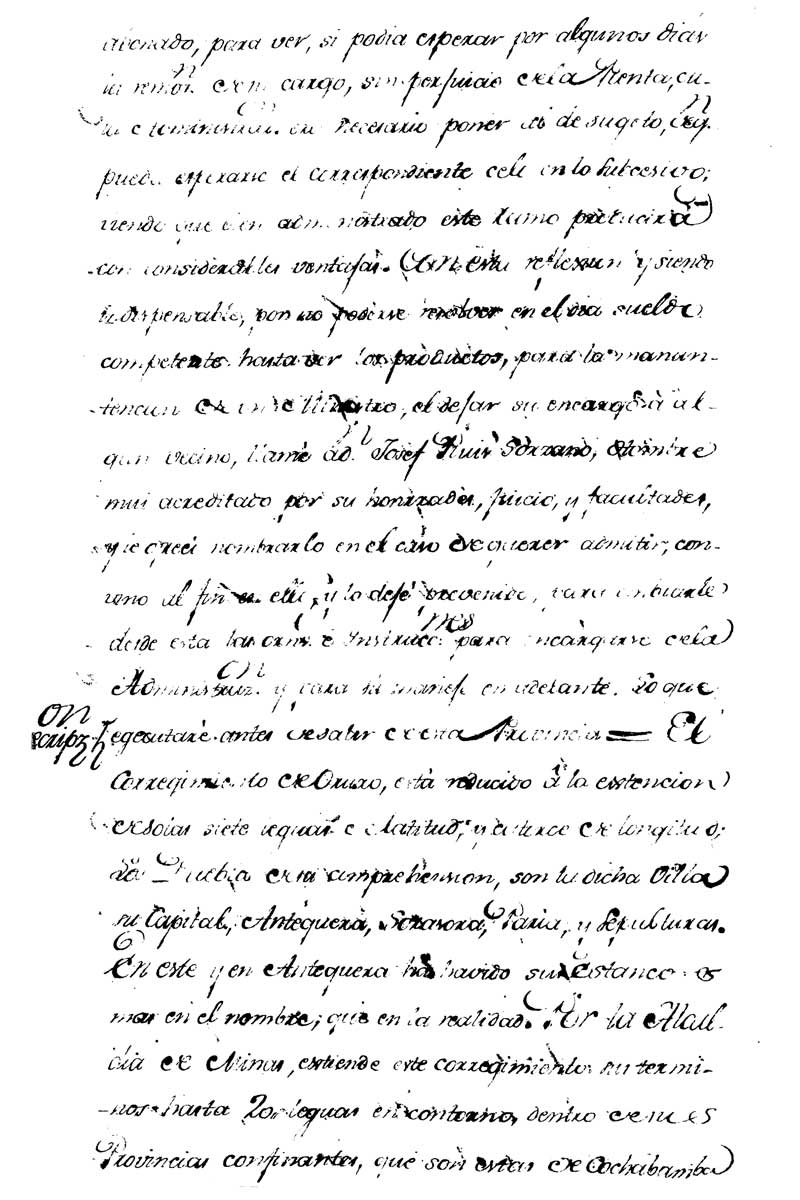 abonado, para ver, si podia esperar por algunos dias
la remon. de su cargo, sin perjuicio de la Renta, cu-
ia era necesario poner de sugeto, deq.
puede esperarse el correspondiente celo en lo subcesivo;
viendo que bien administrado este Ramo producirà
con considerables ventajas. Con esta reflexion y siendo
indispensable, por no poderse resolver en el dia sueldo
competente hasta ver los productos, para la manun-
tencion de este Ministro, el dejar su encargo à al-
gun vecino, llamè àd.n Josef Ruis Sorzano, hombre
mui acreditado por su honrradès, juicio, y facultades,
y le ofreci nombrarlo en el caso de querer admitir; con-
vino al fin en ello, y lo dejé prevenido, para embiarle
desde esta las orns. è Instrucc.nes para encargarse de la
Administraz.on y para su manejo en adelante. Lo que
egecutarè antes de salir de esta Provincia = El
on
Descripz
Corregimiento de Oruro, està reducido à la esstencion
de solas siete leguas de latitud, y catorce de longitud;
Los Pueblos de su comprehension, son la dicha Villa
su Capital, Antequera, Sorasora, Paria, y Sepulturas.
En este y en Antequera ha havido su Estanco
mas en el nombre; que en la realidad. Por la Alcal-
dia de Minas, esstiende este corregimiento su termi-
nos hasta 20 leguas en contorno, dentro de las
Provincias confinantes, que son estas de Cochabamba